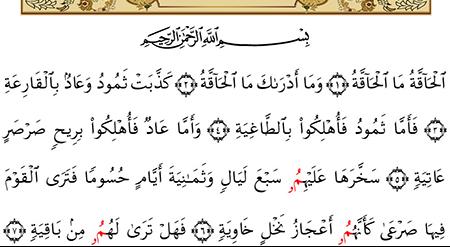 بِسْمِ اللَّهِ الرَّحْمَٰنِ الرَّحِيمِ
الْحَاقَّةُ مَا الْحَاقَّةُ ﴿١﴾ وَمَا أَدْرَىٰكَ مَا الْحَاقَّةُ ﴿٢﴾ كَذَّبَتْ ثَمُودُ وَعَادُۢ بِالْقَارِعَةِ
﴿٣﴾ فَأَمَّا ثَمُودُ فَأُهْلِكُوا۟ بِالطَّاغِيَةِ ﴿٤﴾ وَأَمَّا عَادٌ فَأُهْلِكُوا۟ بِرِيحٍ صَرْصَرٍ
عَاتِيَةٍ ﴿٥﴾ سَخَّرَهَا عَلَيْهِمُۥ سَبْعَ لَيَالٍ وَثَمَٰنِيَةَ أَيَّامٍ حُسُومًا فَتَرَى الْقَوْمَ
فِيهَا صَرْعَىٰ كَأَنَّهُمُۥ أَعْجَازُ نَخْلٍ خَاوِيَةٍ ﴿٦﴾ فَهَلْ تَرَىٰ لَهُمُۥ مِنۢ بَاقِيَةٍ ﴿٧﴾